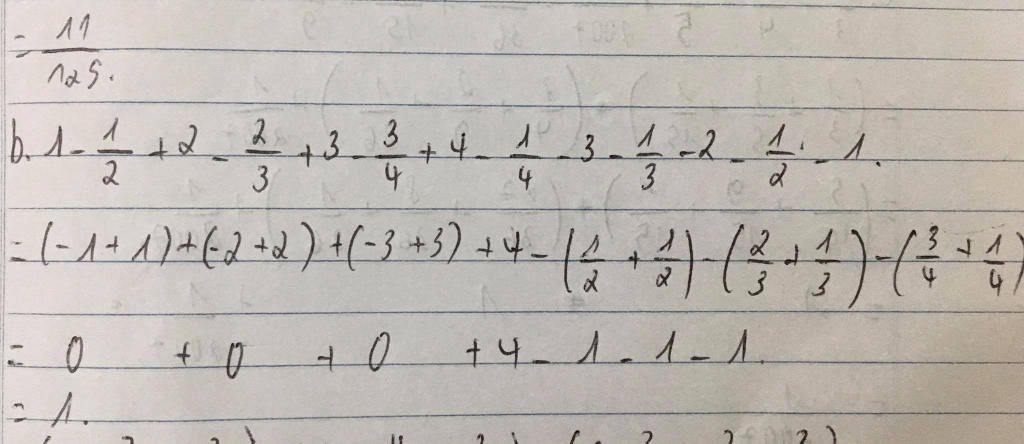 = 11/125.
b. 1 - 1/2 + 2 - 2/3 + 3 - 3/4 + 4 - 1/4 - 3 - 1/3 - 2 - 1/2 - 1.
= (-1+1)+(-2+2)+(-3+3)+4-(1/2+1/2)-(2/3+1/3)-(3/4+1/4)
= 0 + 0 + 0 + 4 - 1 - 1 - 1.
= 1.